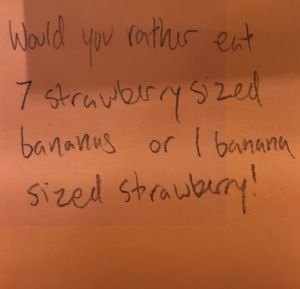 Would you rather eat
7 strawberry sized
bananas or 1 banana
sized strawberry!